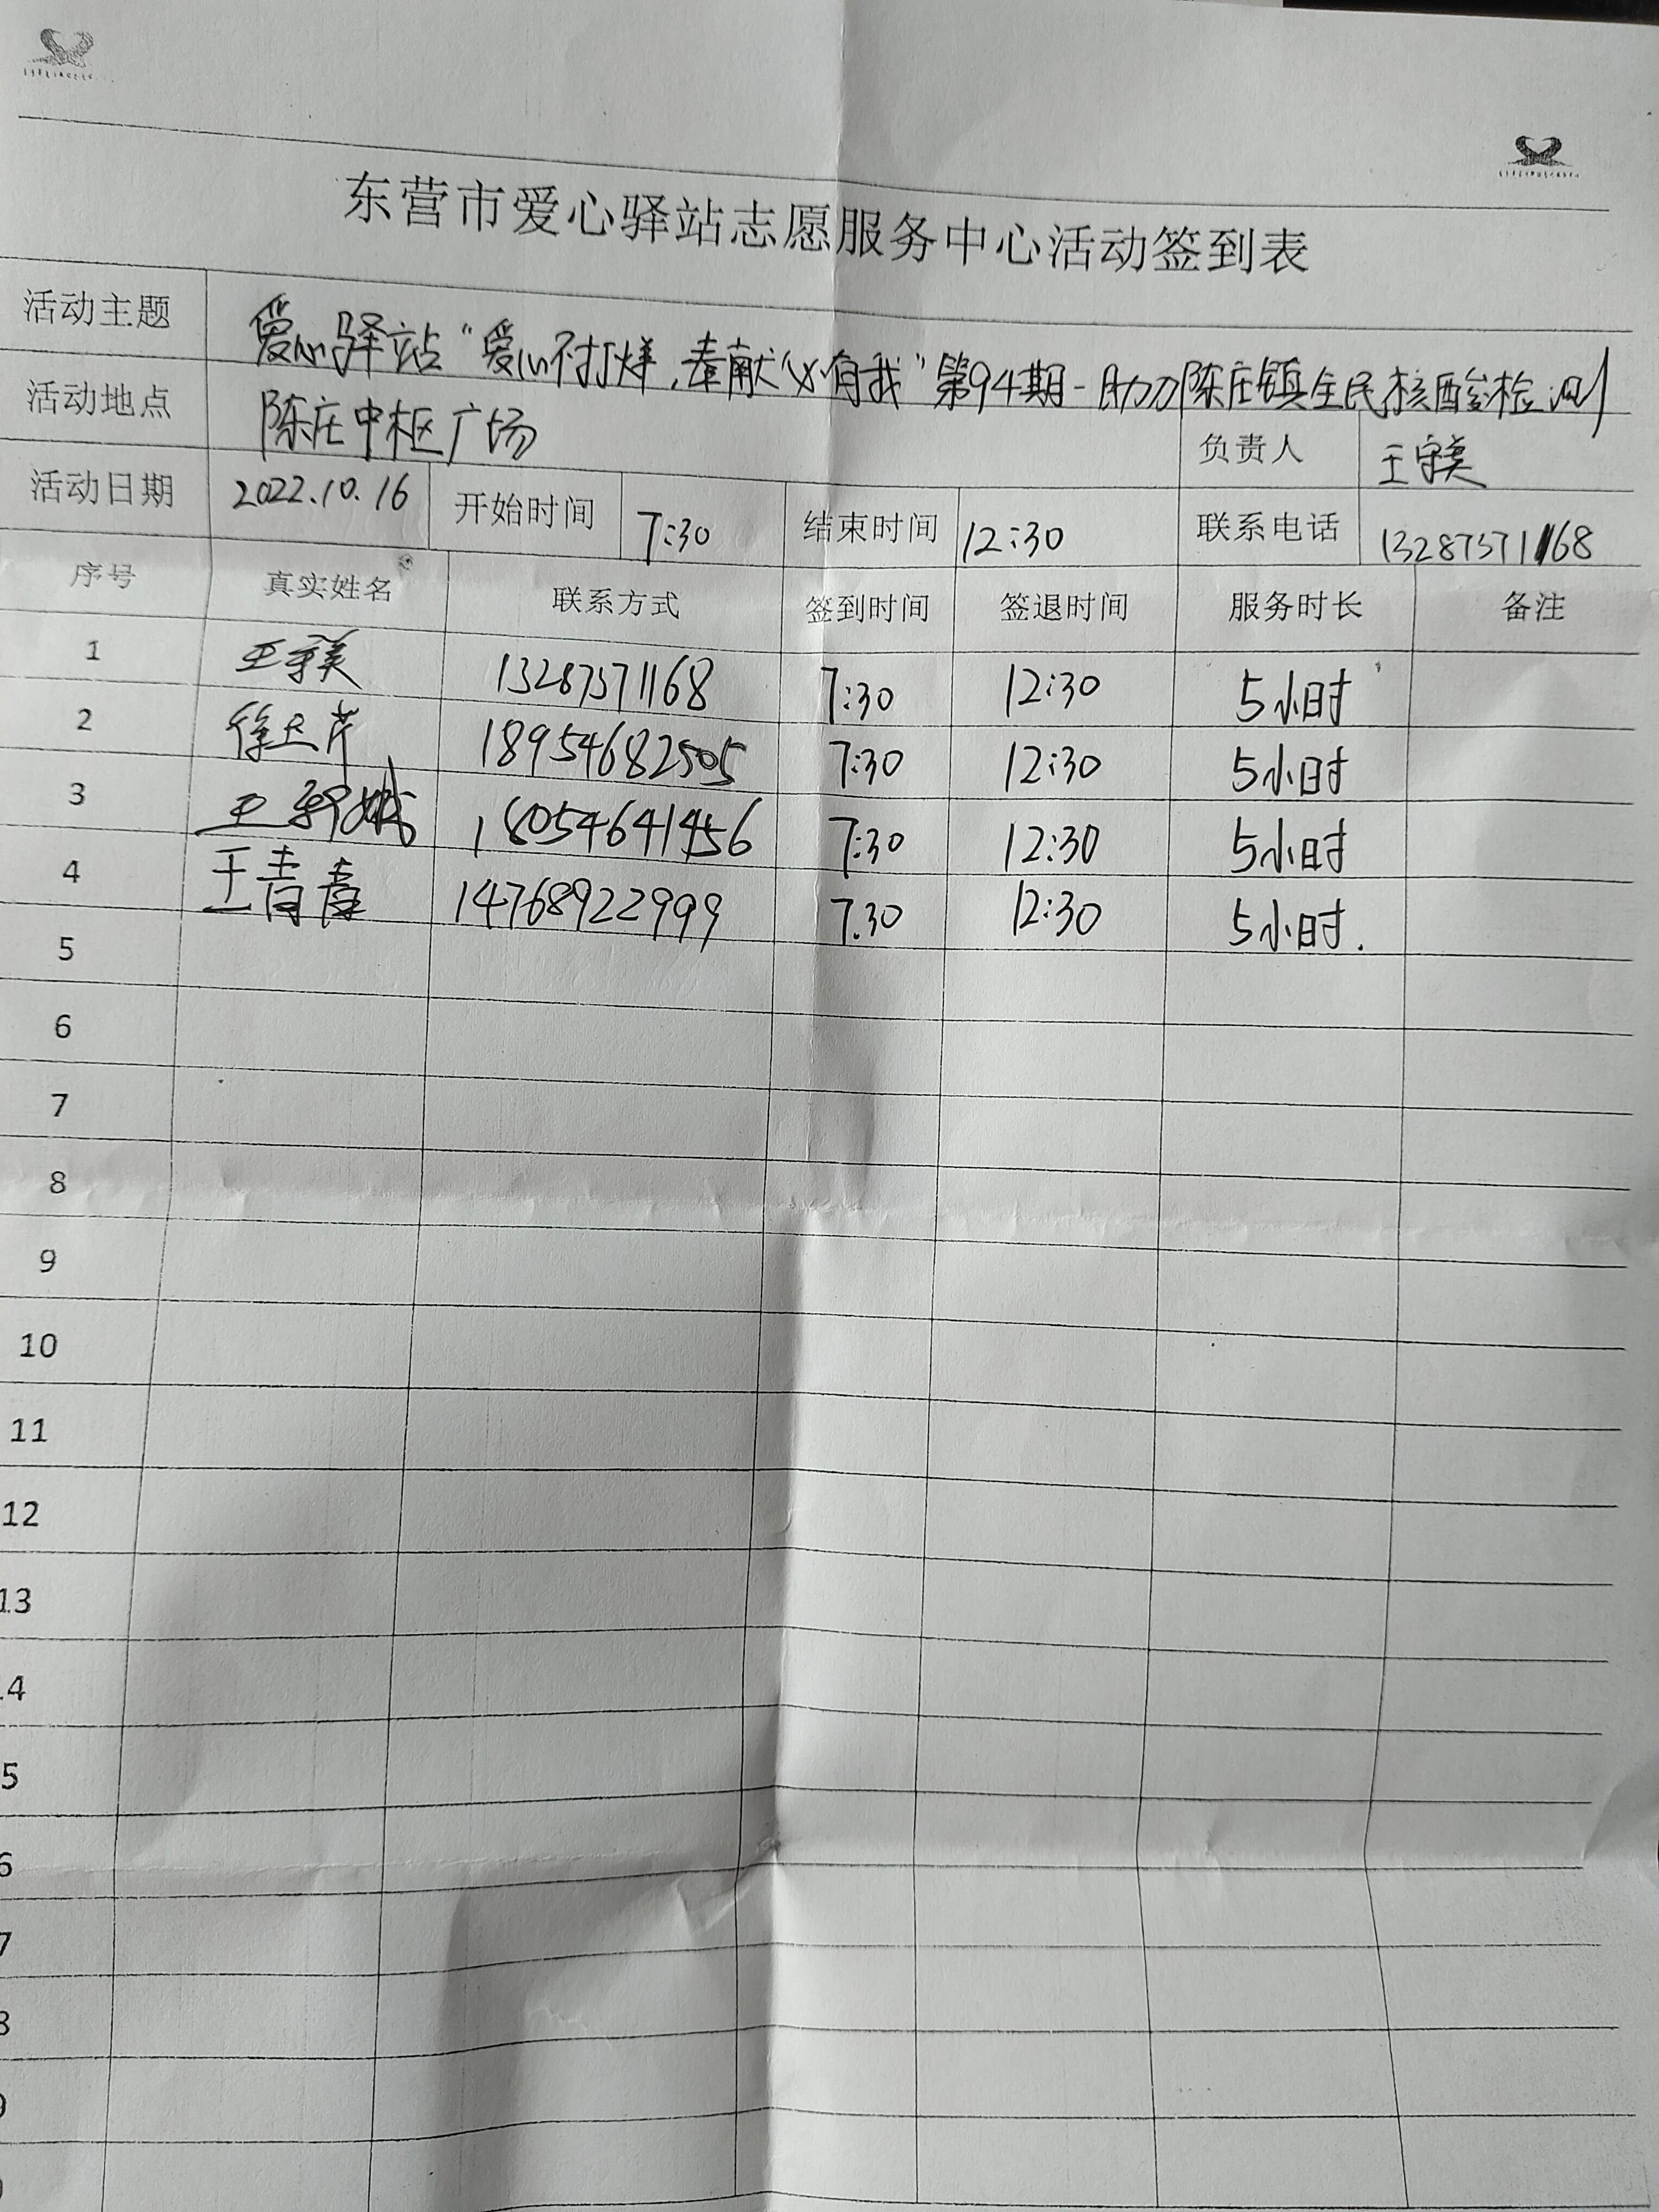 东营市爱心驿站志愿服务中心活动签到表
活动主题 爱心驿站“爱心不打烊,奉献必有我”第94期-助力陈庄镇全民核酸检测
活动地点 陈庄中枢广场 负责人 王守美
活动日期 2022.10.16 开始时间 7:30 结束时间 12:30 联系电话 13287371168
序号 真实姓名 联系方式 签到时间 签退时间 服务时长 备注
1 王守美 13287371168 7:30 12:30 5小时
2 徐 芹 18954682505 7:30 12:30 5小时
3 王 18054641456 7:30 12:30 5小时
4 王青青 14768922999 7.30 12:30 5小时.
5
6
7
8
9
10
11
12
13
14
5
6
7
8
9